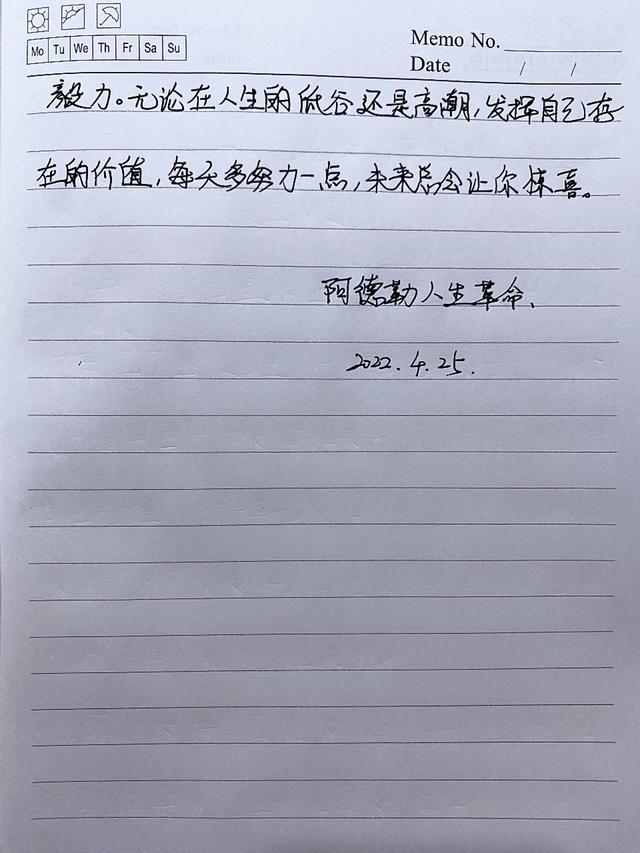 Mo Tu We Th Fr Sa Su
Memo No.
Date / /
毅力。无论在人生的低谷还是高潮,发挥自己存
在的价值,每天多努力一点,未来总会让你惊喜。
阿德勒人生革命、
2022.4.25.